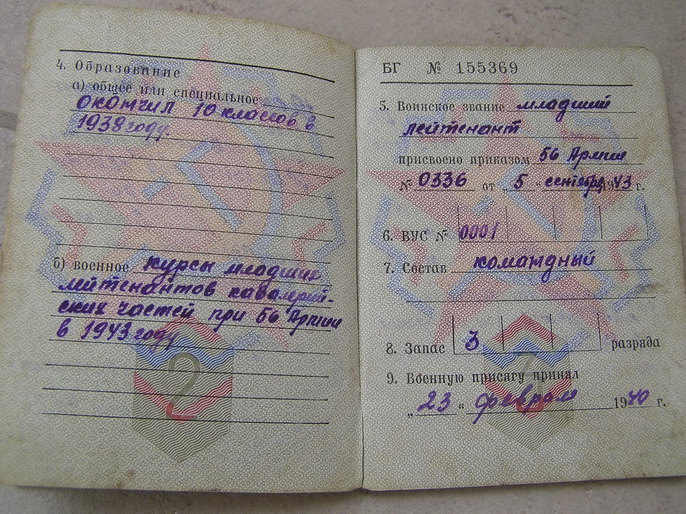 4. Образование
а) общее или специальное
окончил 10 классов в
1938 году.
б) военное курсы младших
лейтенантов кавалерий-
ских частей при 56 Армии
в 1943 году
2
БГ № 155369
5. Воинское звание младший
лейтенант
присвоено приказом 56 Армии
№ 0336 от „5“ сентября 1943 г.
6. ВУС № 0001
7. Состав командный
8. Запас 3 разряда
9. Военную присягу принял
„23“ февраля 1940 г.
3